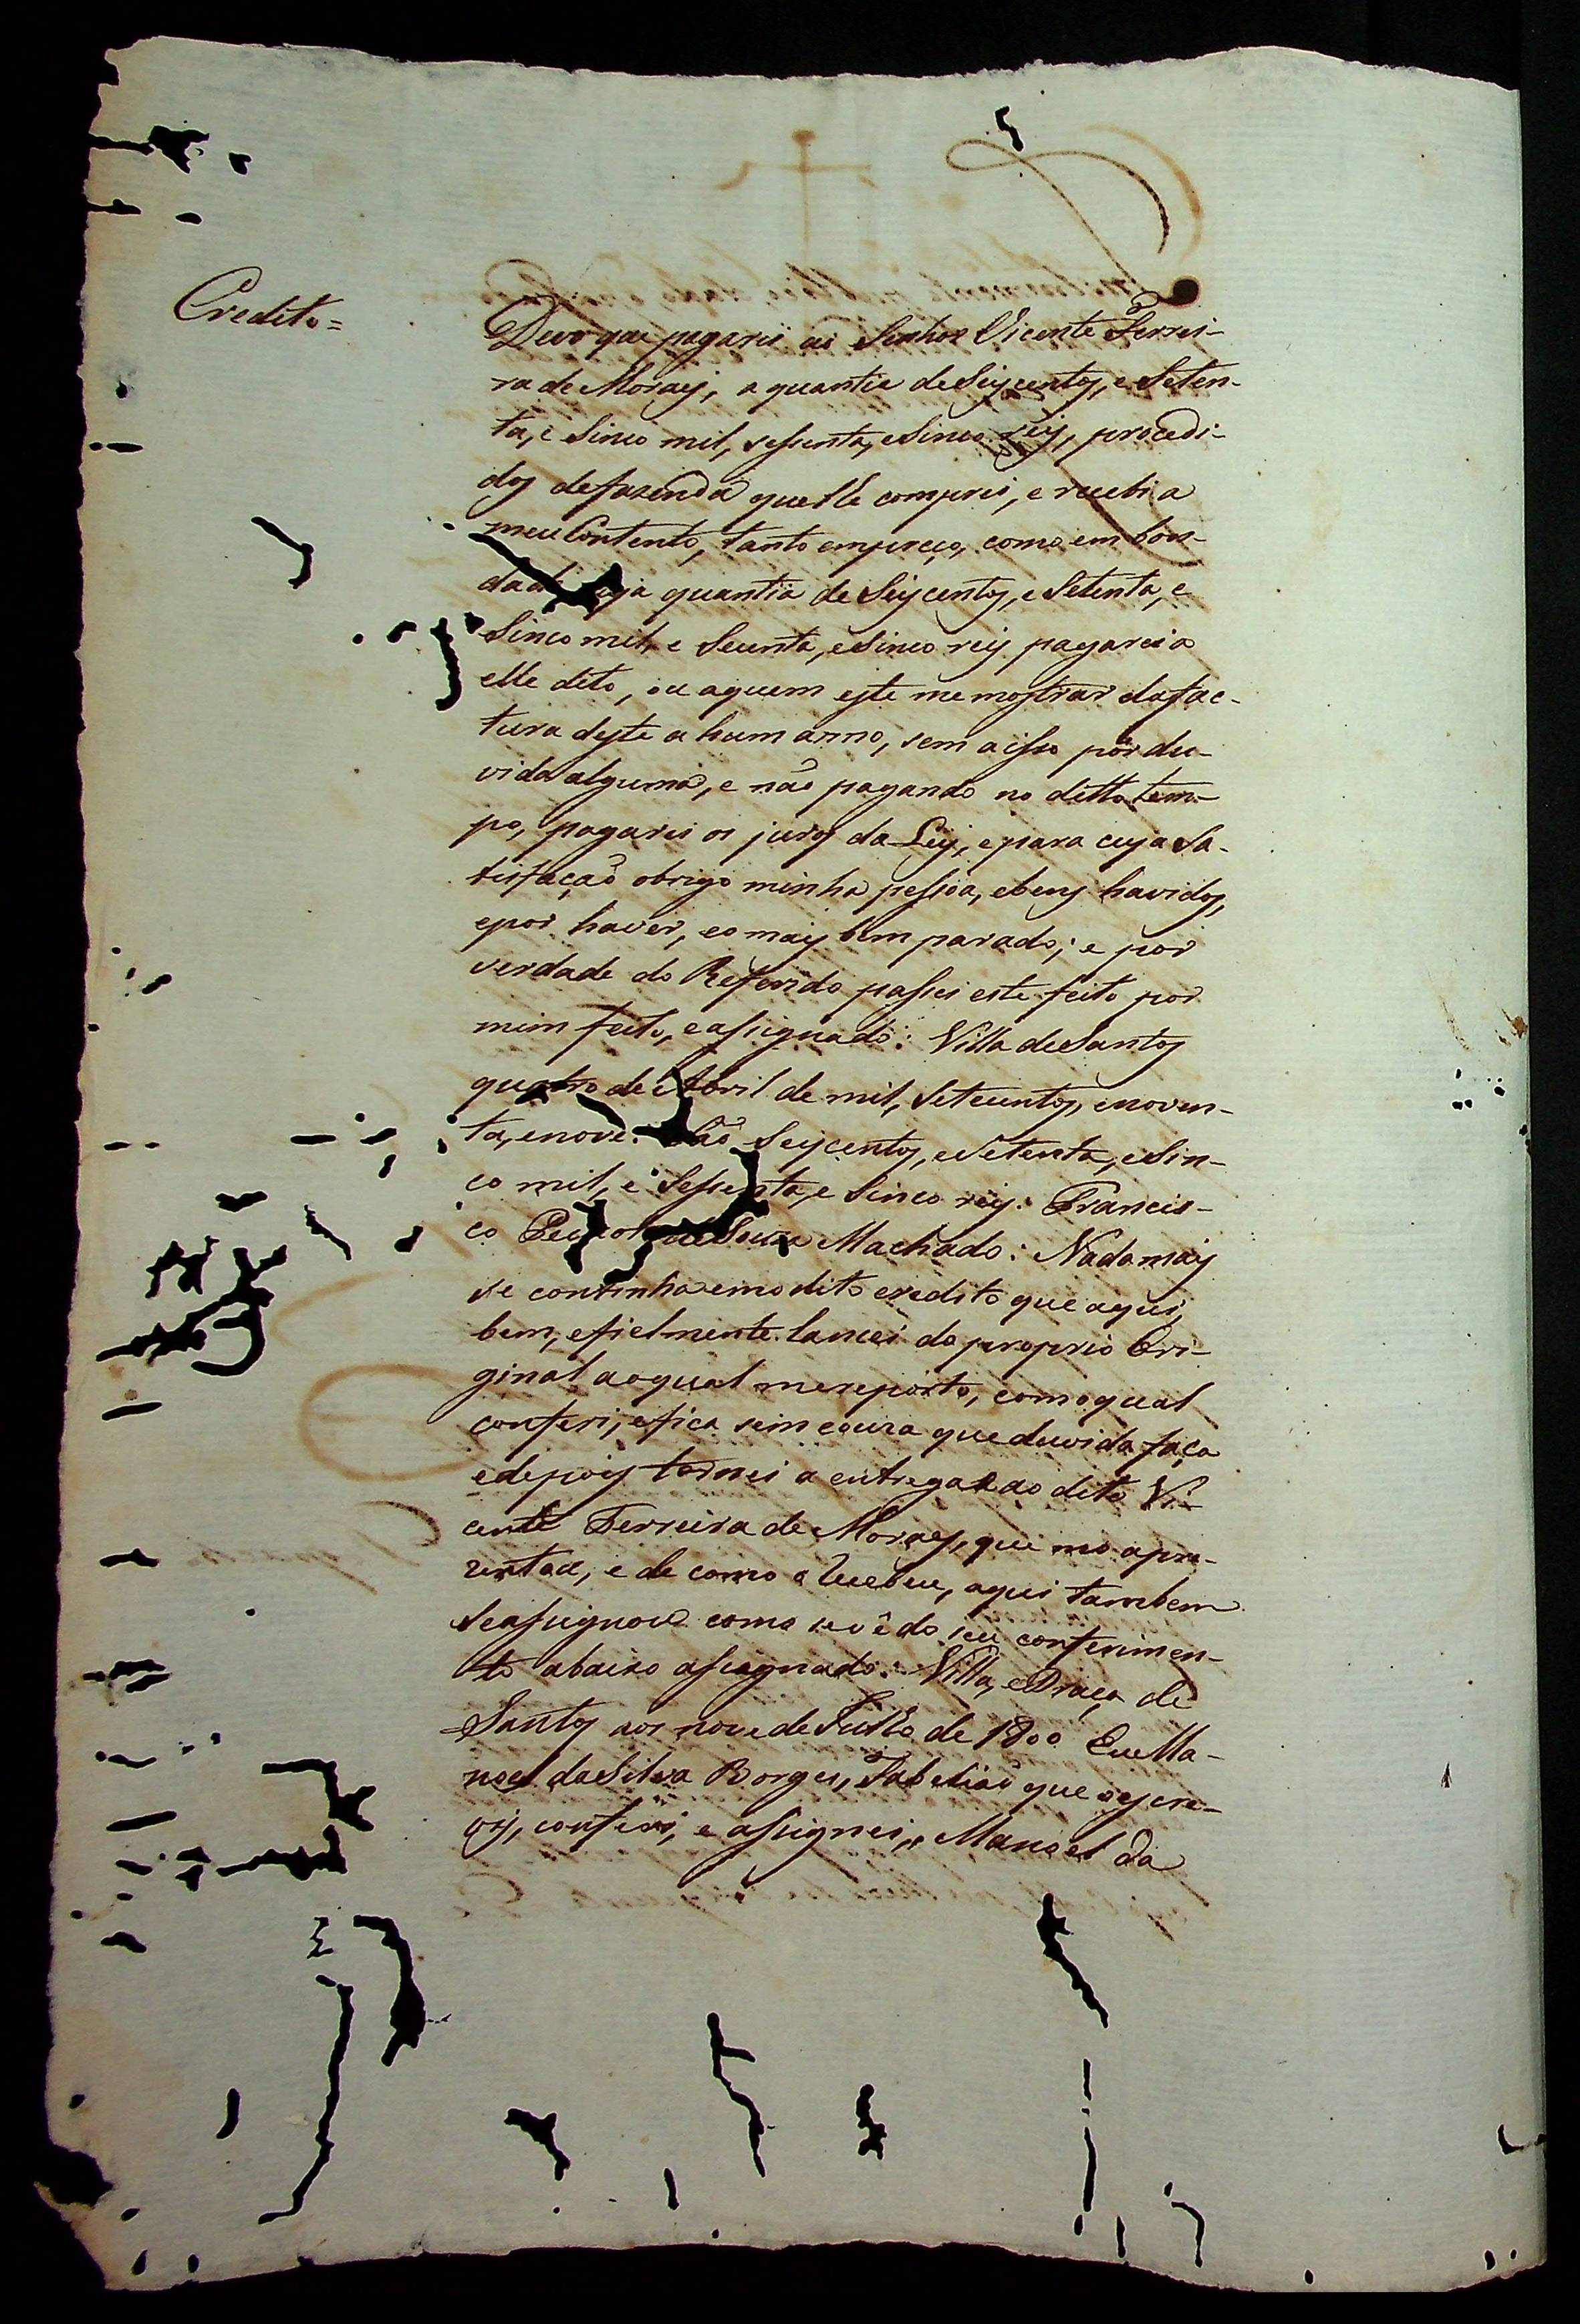 Credito=
Devo que pagarei ao Senhor Vicente Ferrei-
ra de Moraes, a quantia de Seiscentos, e Seten-
ta, e Sinco mil, sessenta, e Sinco reis, procedi-
dos de fazenda que lhe comprei, e recebi a
meu Contento, tanto em preço, como em bon-
dade cuja quantia de Seiscentos, e Setenta, e
Sinco mil, e Secenta, e Sinco reis pagarei a
elle dito, ou aquem este me mostrar da fac-
tura deste a hum anno, sem a isso pôr du-
vida alguma, e não pagando no ditto tem-
po, pagarei os juros da Ley, e para cuja Sa-
tisfação obrigo minha pessoa, e bens havidos,
e por haver, e o mais bem parado; e por
verdade do Referido passei este feito por
mim feito, e assignado: Villa de Santos
quatro de Abril de mil, Setecentos, e noven-
ta, e nove: São Seiscentos, e Setenta, e Sin-
co mil, e Sessenta, e Sinco reis: Francis-
co de Souza Machado: Nada mais
se continha em o dito credito que aqui,
bem, e fielmente lancei do proprio Ori-
ginal ao qual me reporto, com o qual
conferi, e fica sem couza que duvida faça
e depois tornei a entregar ao dito Vi-
cente Ferreira de Moraes, que mo apre-
zentou, e de como o recebeu, aqui tambem
se assignou como se vê do seu conferimen-
to abaixo assignado: Villa, e Praça de
Santos aos nove de Julho de 1800 Eu Ma-
noel da Silva Borges, Tabelião que o escre-
vy, conferi, e assignei, Manoel da